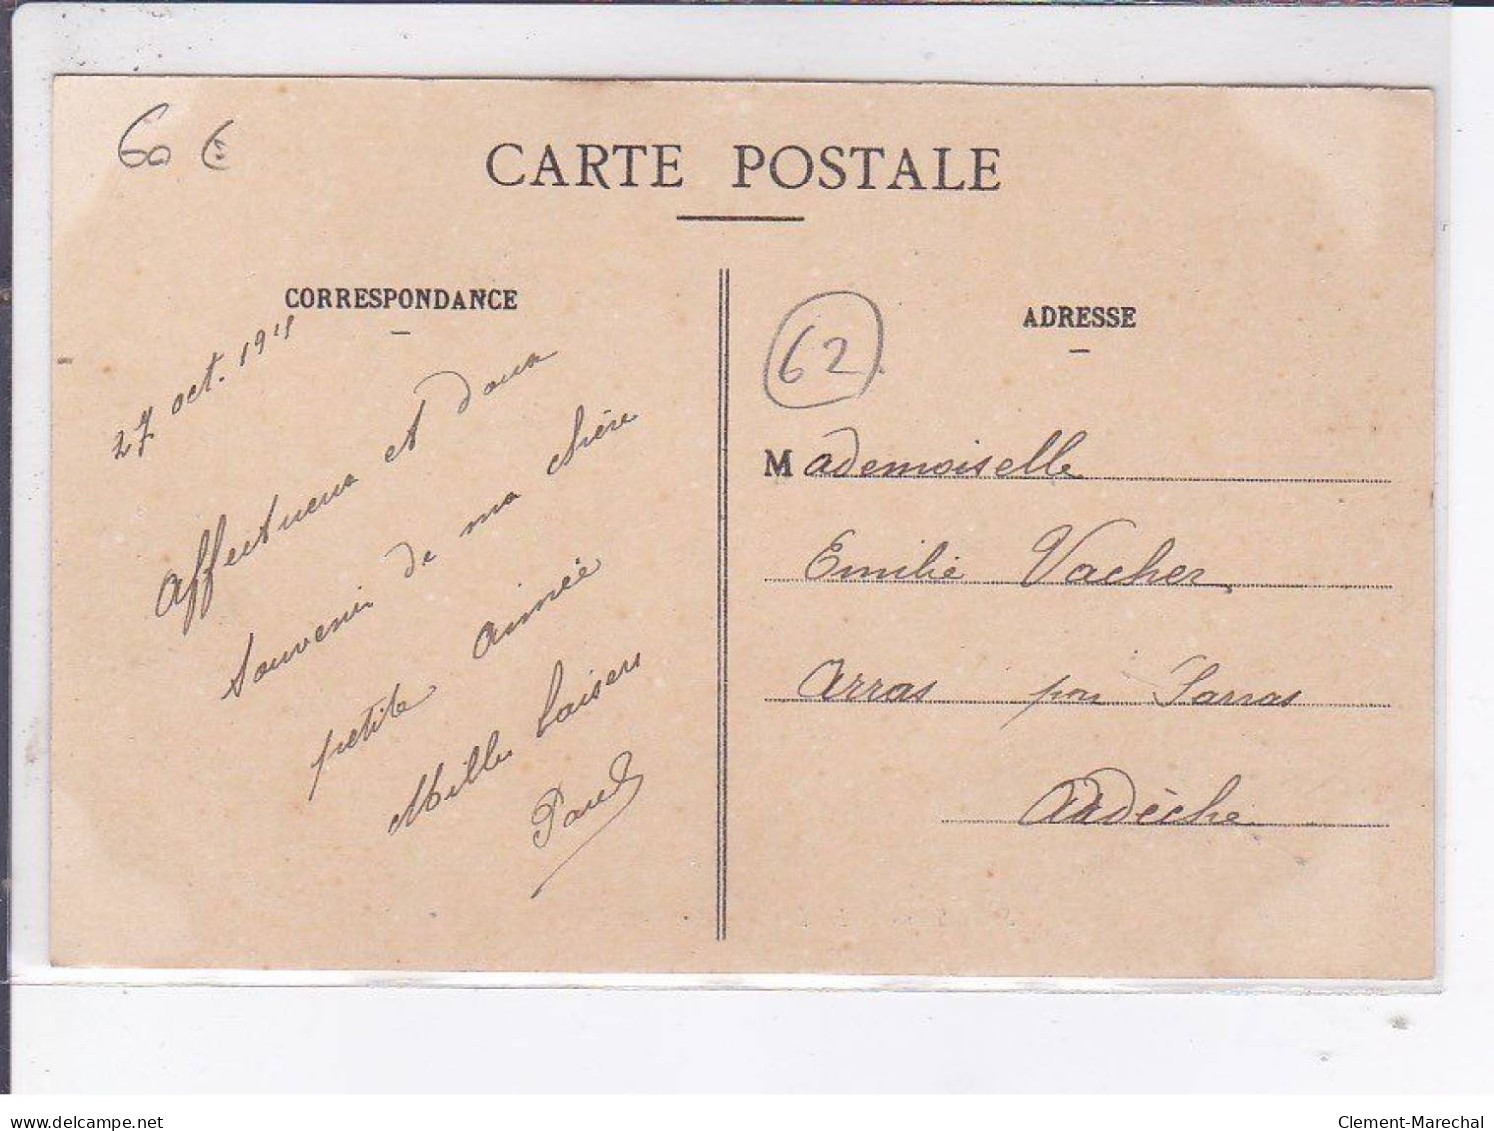 60 €
CARTE POSTALE
CORRESPONDANCE
27 oct. 1911
Affectueux et doux
souvenir de ma chère
petite aimée
Mille baisers
Paul
62
ADRESSE
Mademoiselle
Emilie Vacher
Arras par Sarras
Ardèche
www.delcampe.net
Clement-Marechal